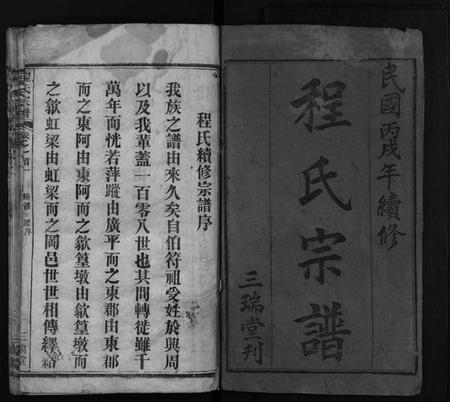 民國丙戌年續修
程氏宗譜
三瑞堂刊
程氏續修宗譜序
我族之譜由來久矣自伯符祖受姓於興周
以及我輩蓋一百零八世也其間轉徙雖千
萬年而恍若萍蹤由廣平而之東郡由東郡
而之東阿由東阿而之歙篁墩由歙篁墩而
之歙虹梁由虹梁而之岡邑世世相傳繹繹
程氏宗譜
卷之首
三瑞堂